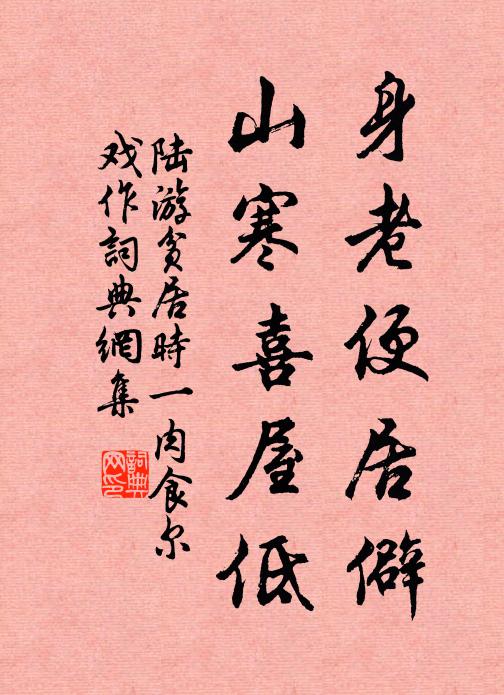 身老便居僻
山寒喜屋低
陆游贫居時一肉食尔
戏作詞典網集
詞典网印